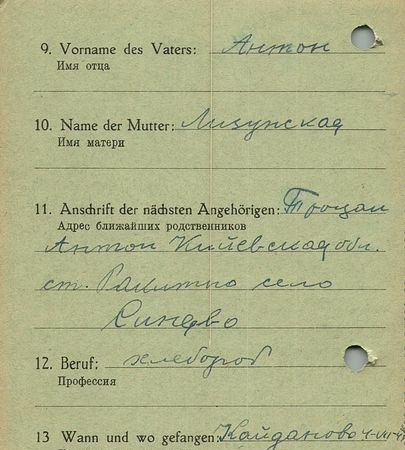 9. Vorname des Vaters: Антон
Имя отца
10. Name der Mutter: Лизунская
Имя матери
11. Anschrift der nächsten Angehörigen: Троцан
Адрес ближайших родственников
Антон Киевская обл.
ст. Ракитно село
Синево
12. Beruf: хлебороб
Профессия
13 Wann und wo gefangen: Кайданово